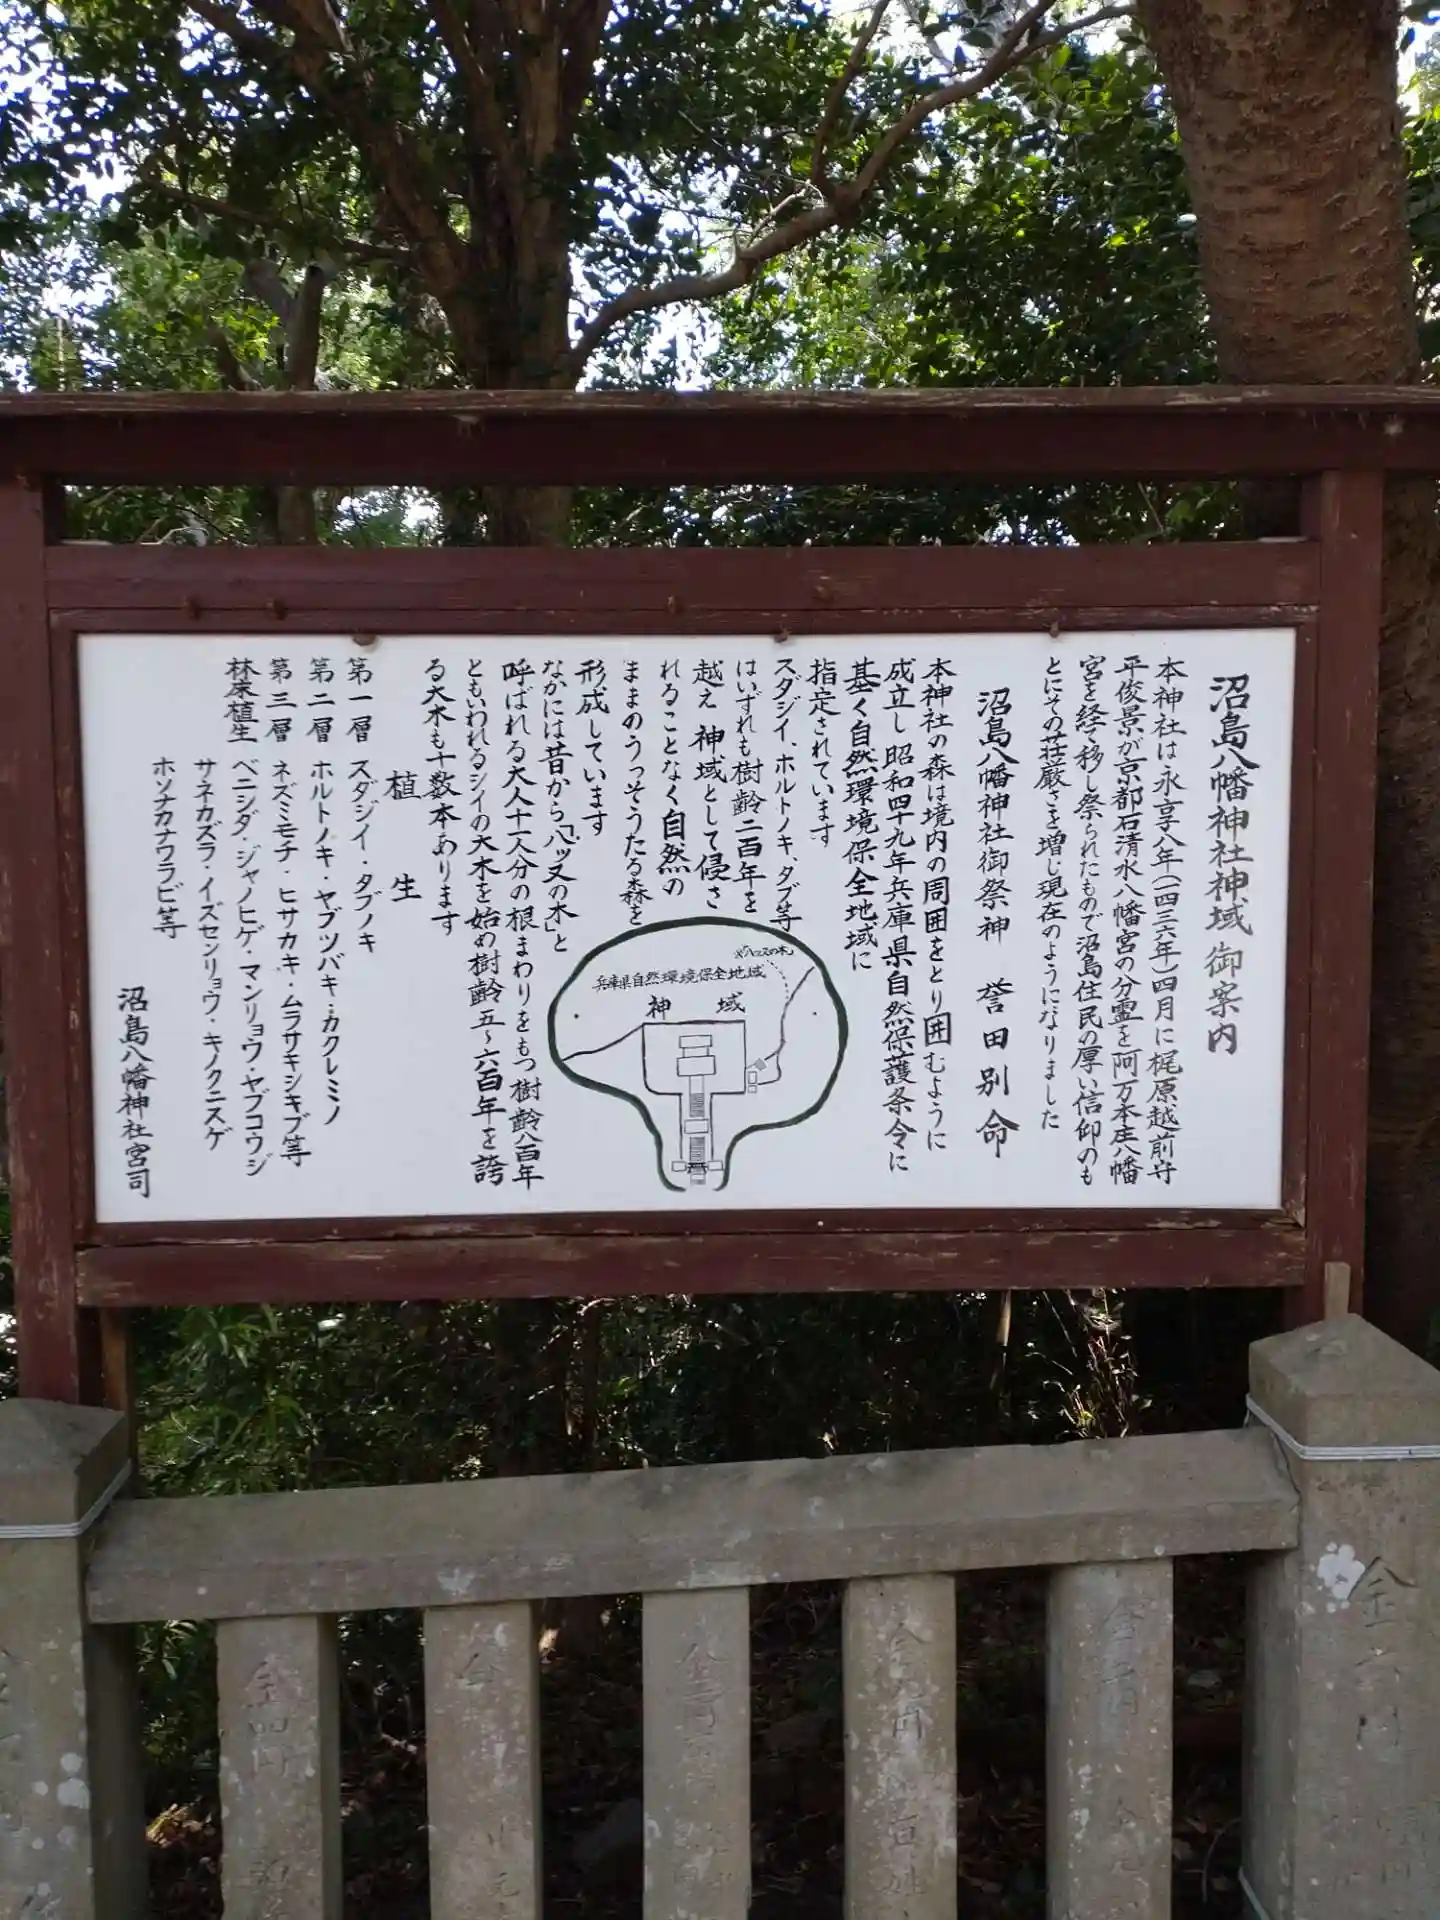 沼島八幡神社神域御案内
本神社は永享八年(一四三六年)四月に梶原越前守
平俊景が京都石清水八幡宮の分霊を阿万本庄八幡
宮を経て移し祭られたもので沼島住民の厚い信仰のも
とにその荘厳さを増し現在のようになりました
沼島八幡神社御祭神 誉田別命
本神社の森は境内の周囲をとり囲むように
成立し昭和四十九年兵庫県自然保護条令に
基く自然環境保全地域に
指定されています
スダジイ、ホルトノキ、タブ等
はいずれも樹齢二百年を
越え 神域として侵さ
れることなく自然の
ままのうっそうたる森を
形成しています
なかには昔から「八ッ又の木」と
呼ばれる大人十一人分の根まわりをもつ樹齢八百年
ともいわれるシイの大木を始め樹齢五〜六百年を誇
る大木も十数本あります
植生
第一層 スダジイ・タブノキ
第二層 ホルトノキ・ヤブツバキ・カクレミノ
第三層 ネズミモチ・ヒサカキ・ムラサキシキブ等
林床植生 ベニシダ・ジャノヒゲ・マンリョウ・ヤブコウジ
サネカズラ・イズセンリョウ・キノクニスゲ
ホソカナワラビ等
沼島八幡神社宮司
八ッ又の木
兵庫県自然環境保全地域
神域